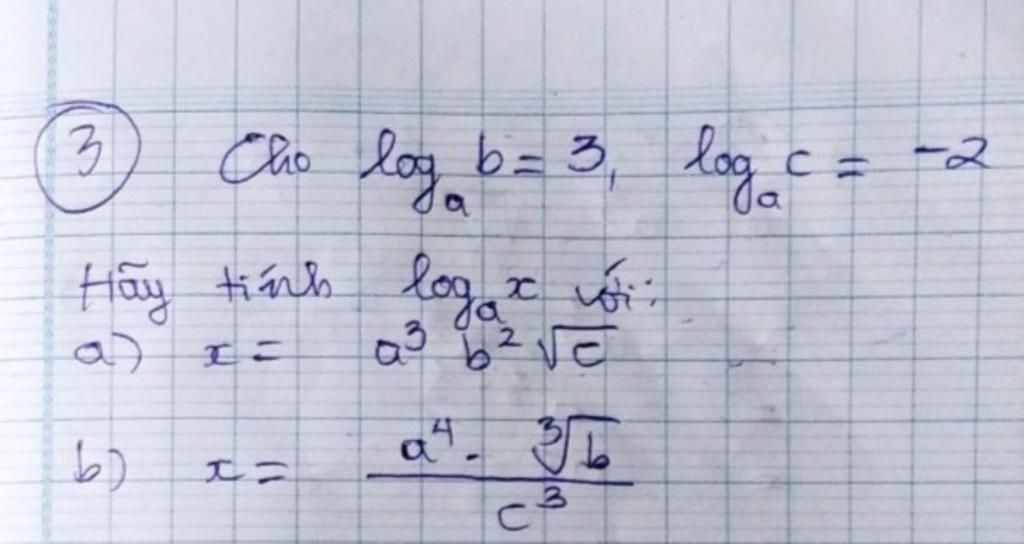 3 Cho logₐ b = 3, logₐ c = -2
Hãy tính logₐ x với:
a) x = a³ b² √c
b) x = (a⁴. ∛b)/c³